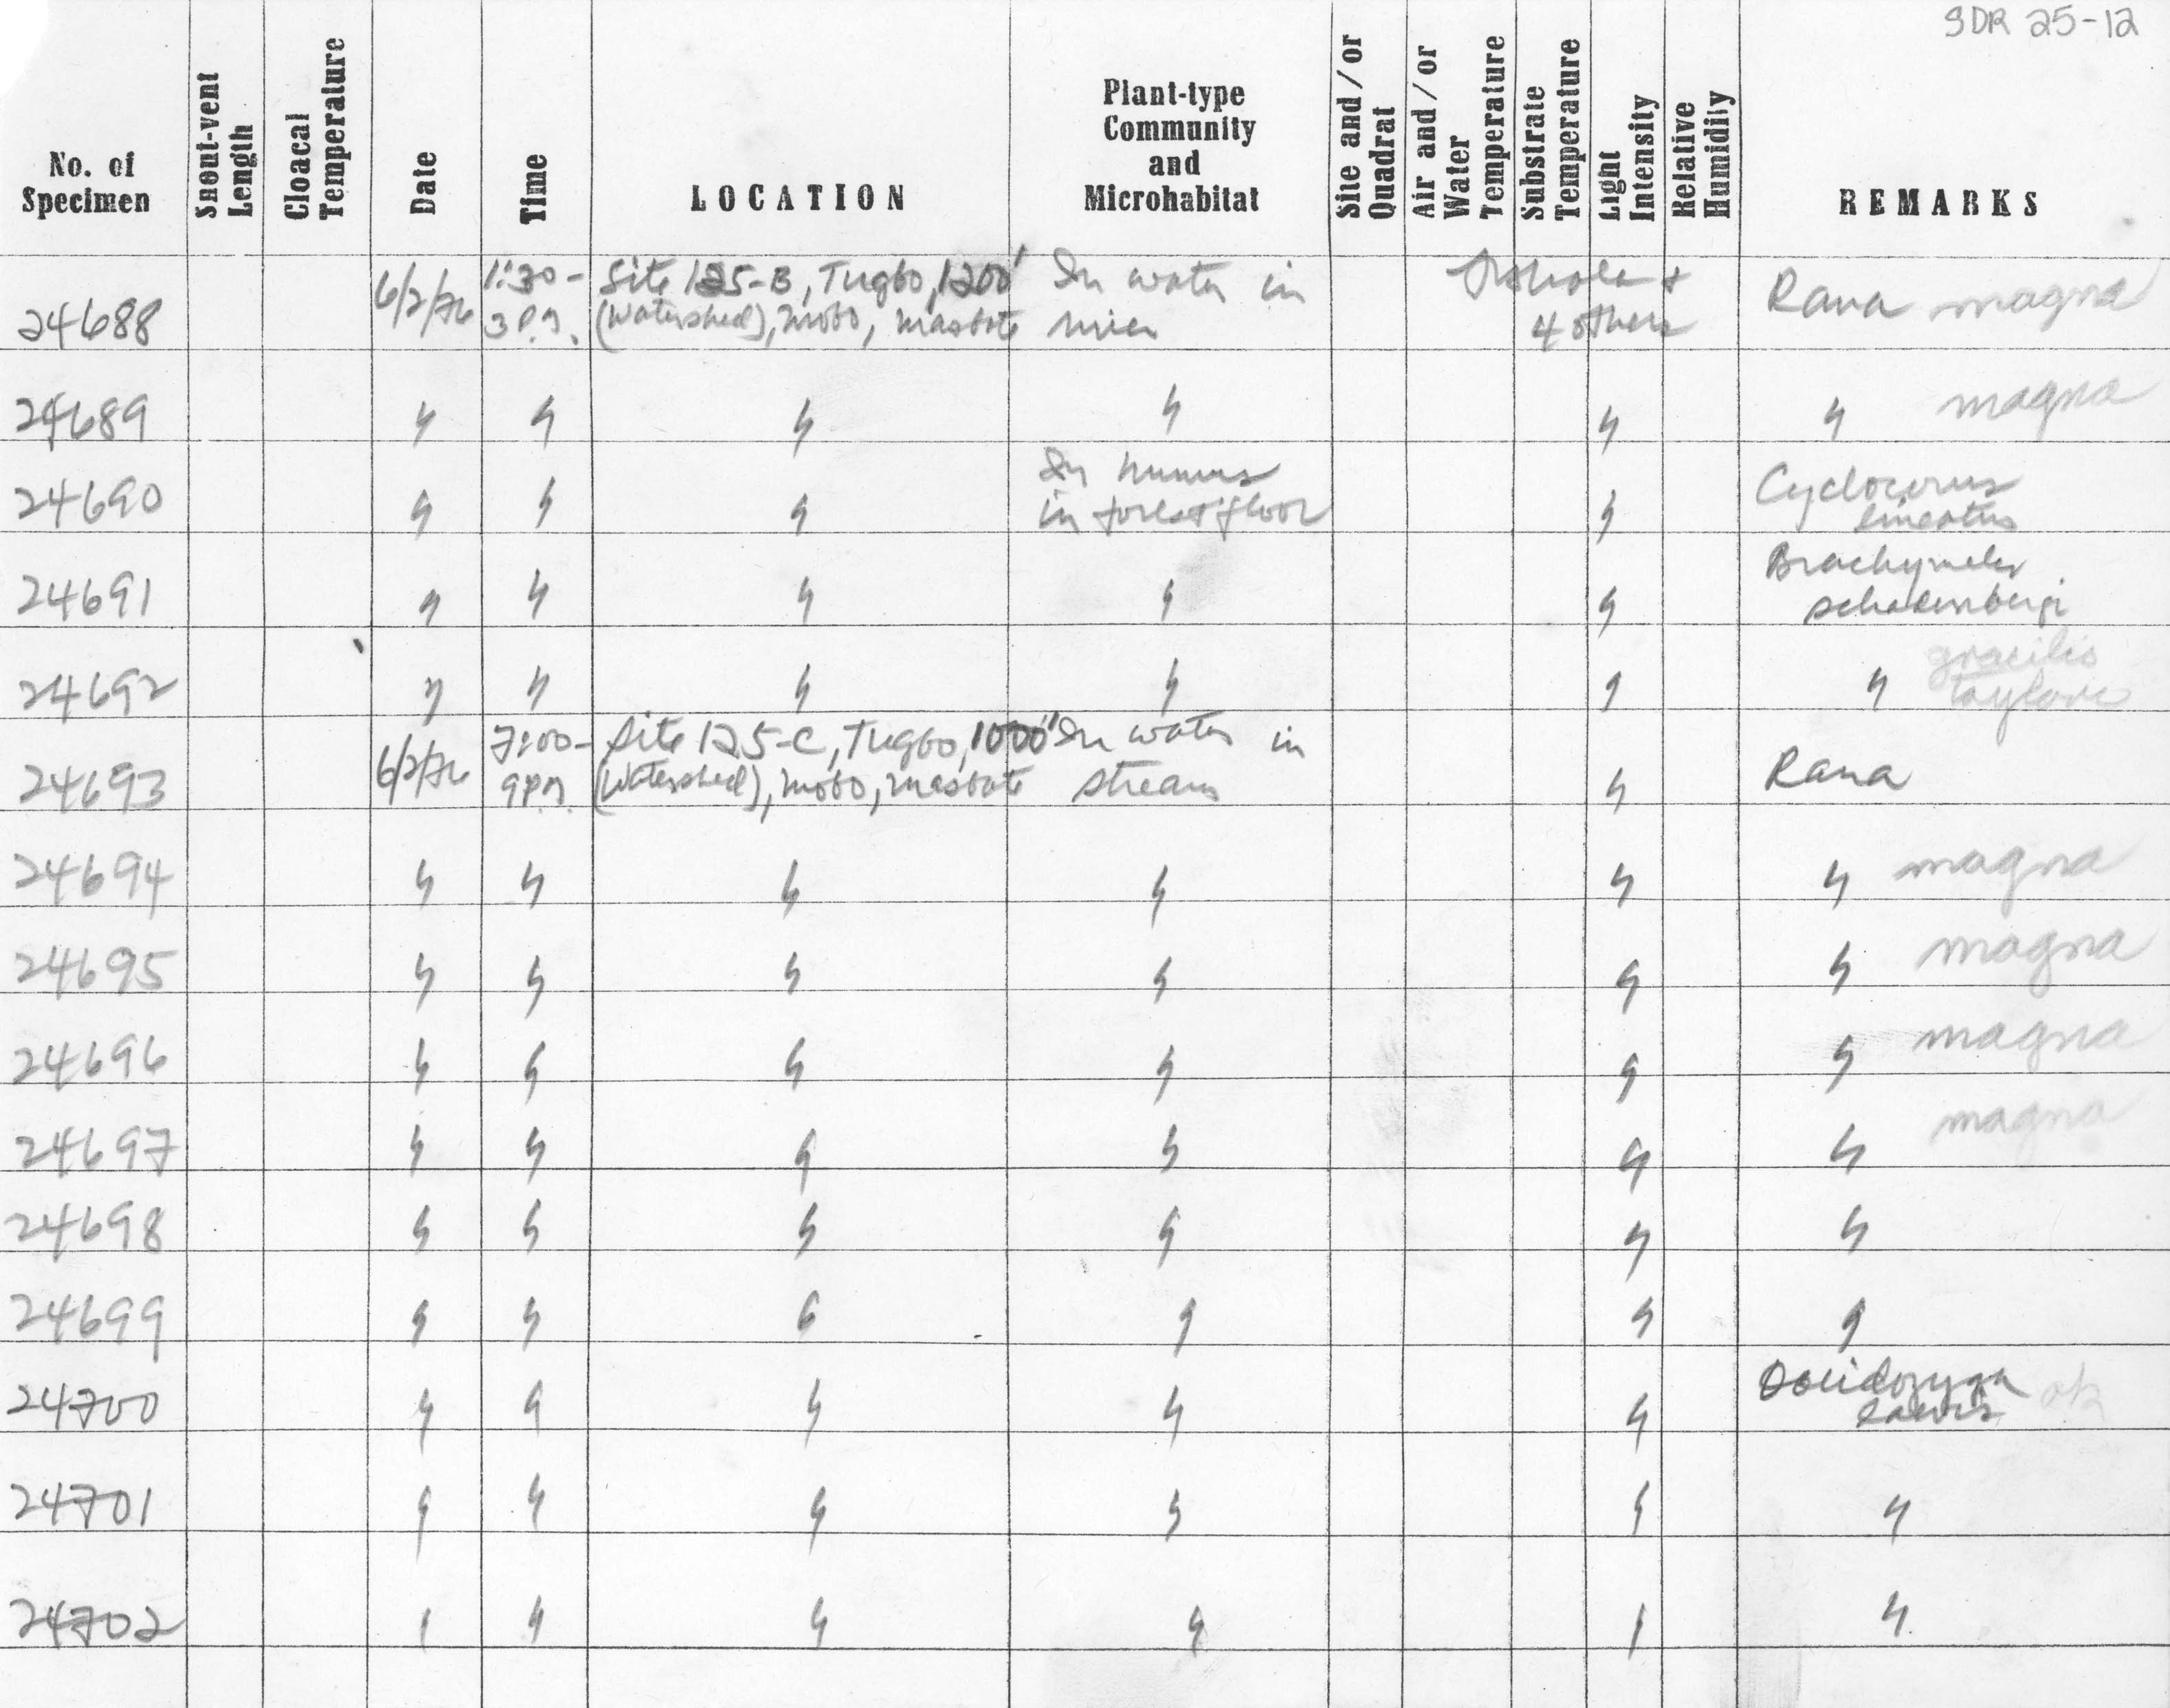 SDR 25-12
No. of Specimen | Snout-vent Length | Cloacal Temperature | Date | Time | LOCATION | Plant-type Community and Microhabitat | Site and/or Quadrat | Air and/or Water Temperature | Substrate Temperature | Light Intensity | Relative Humidity | REMARKS
24688 6/2/76 1:30- Site 125-B, Tugbo, 1200' In water in + Rana magna
3 P.M. (Watershed), Mobo, Masbate river 4 others
24689 " " " " " " magna
24690 " " " In humus " Cyclocorus
in forest floor lineatus
24691 " " " " " Brachymeles
schadenbergi
24692 " " " " " " gracilis
taylori
24693 6/2/76 7:00- Site 125-C, Tugbo, 1000' In water in " Rana
9 P.M. (Watershed), Mobo, Masbate stream
24694 " " " " " " magna
24695 " " " " " " magna
24696 " " " " " " magna
24697 " " " " " " magna
24698 " " " " " "
24699 " " " " " "
24700 " " " " " Ooeidozyga
laevis ok
24701 " " " " " "
24702 " " " " " "